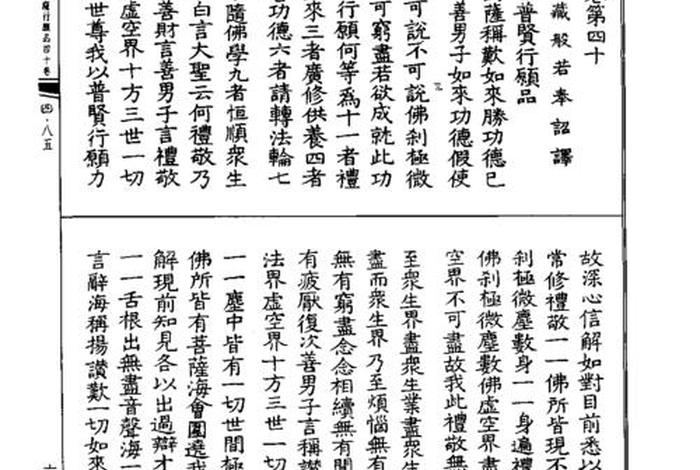 第四十
藏般若奉詔譯
普賢行願品
薩稱歎如來勝功德已
善男子如來功德假使
可說不可說佛剎極微
可窮盡若欲成就此功
行願何等為十一者禮
來三者廣修供養四者
功德六者請轉法輪七
隨佛學九者恒順眾生
白言大聖云何禮敬乃
善財言善男子言禮敬
虛空界十方三世一切
世尊我以普賢行願力
行願品四十卷
四·八五
故深心信解如對目前悉以
常修禮敬一一佛所皆現不
剎極微塵數身一一身遍禮
佛剎極微塵數佛虛空界盡
空界不可盡故我此禮敬無
至眾生界盡眾生業盡眾生
盡而眾生界乃至煩惱無有
無有窮盡念念相續無有間
有疲厭復次善男子言稱讚
法界虛空界十方三世一切
一一塵中皆有一切世間極
佛所皆有菩薩海會圍遶我
解現前知見各以出過辯才
一一舌根出無盡音聲海一
言辭海稱揚讚歎一切如來